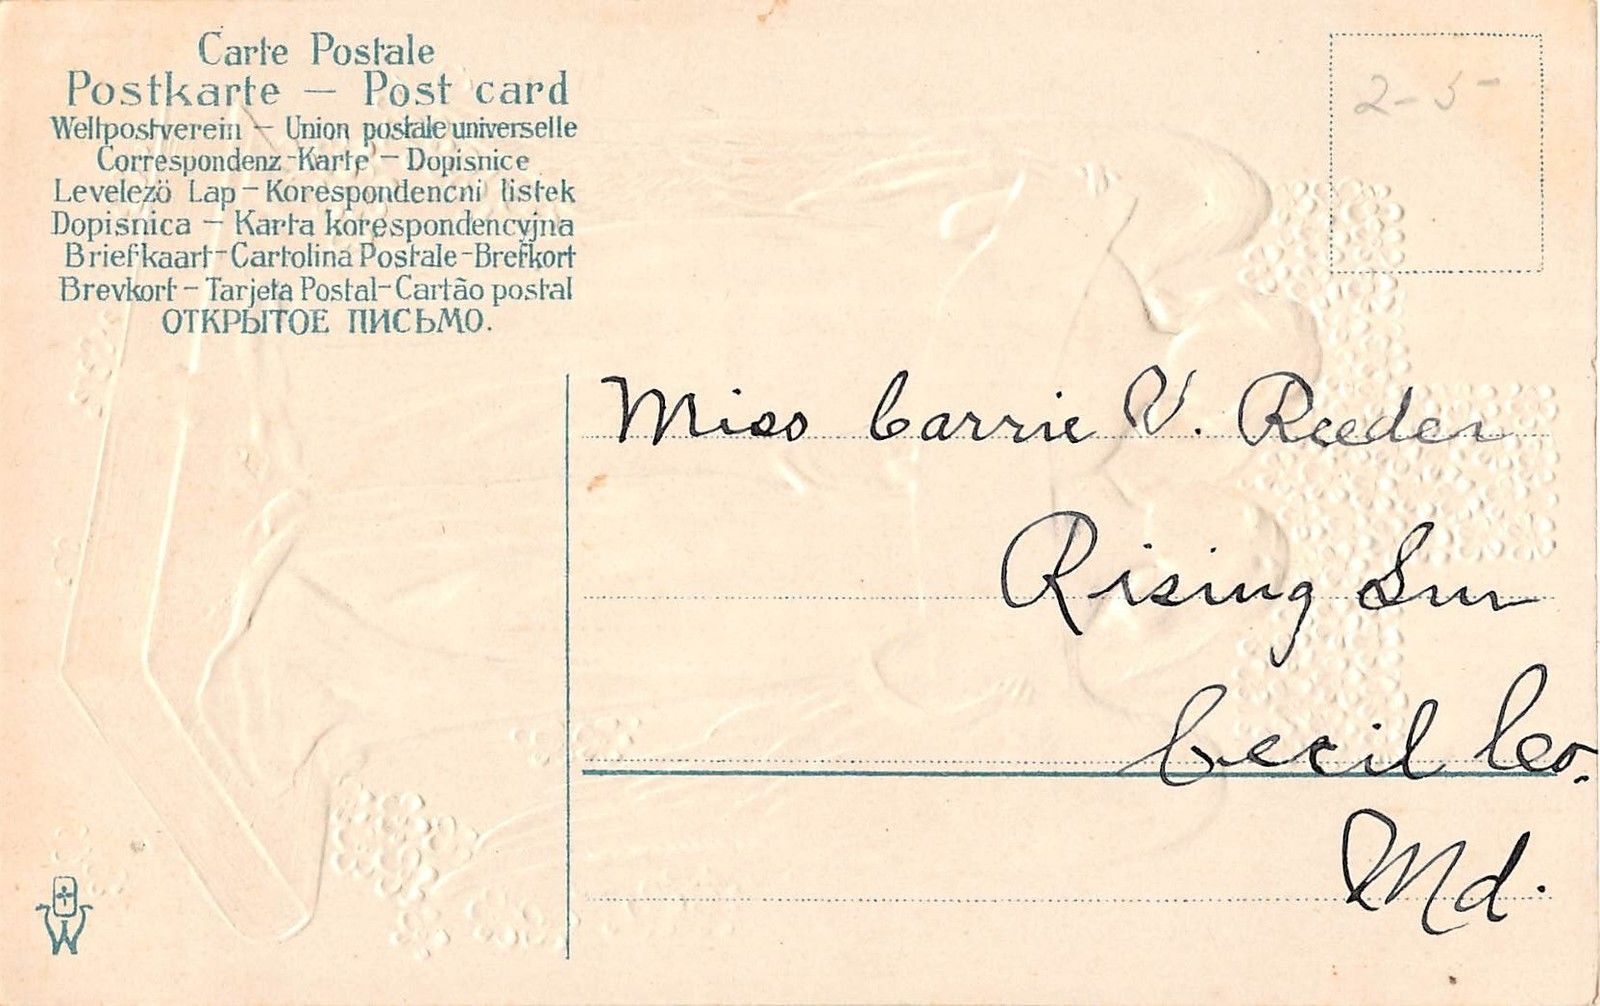 Carte Postale
Postkarte — Post card
Weltpostverein — Union postale universelle
Correspondenz-Karte — Dopisnice
Levelezö Lap — Korespondencni listek
Dopisnica — Karta korespondencyjna
Briefkaart-Cartolina Postale-Brefkort
Brevkort — Tarjeta Postal-Cartão postal
ОТКРЫТОЕ ПИСЬМО.
2-5-
Miss Carrie V. Reeder
Rising Sun
Cecil Co.
Md.